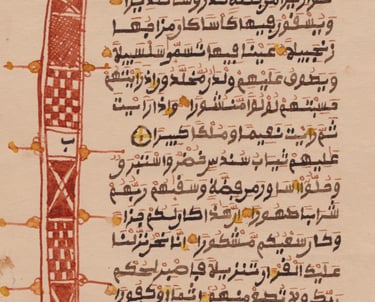 قواريرا من فضة قدروها تقديرا
ويسقون فيها كأسا كان مزاجها
زنجبيلا عينا فيها تسمى سلسبيلا
ويطوف عليهم ولدن مخلدون إذا رأيتهم
حسبتهم لؤلؤا منثورا وإذا رأيت
ثم رأيت نعيما وملكا كبيرا
ب
عليهم ثياب سندس خضر واستبرق
وحلوا أساور من فضة وسقيهم ربهم
شرابا طهورا إن هذا كان لكم جزاء
وكان سعيكم مشكورا إنا نحن نزلنا
عليك القرءان تنزيلا فاصبر لحكم
ربك ولا تطع منهم ءاثما أو كفورا